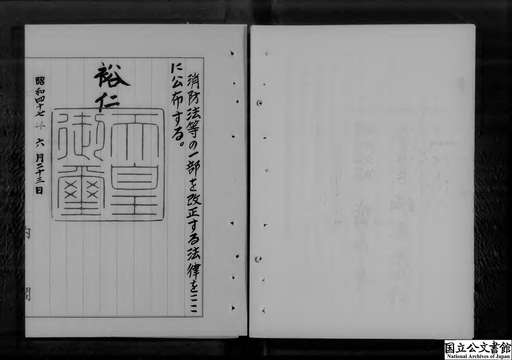 消防法等の一部を改正する法律をここ
に公布する。
裕仁
天皇
御璽
昭和四十七年六月二十三日
国立公文書館
National Archives of Japan